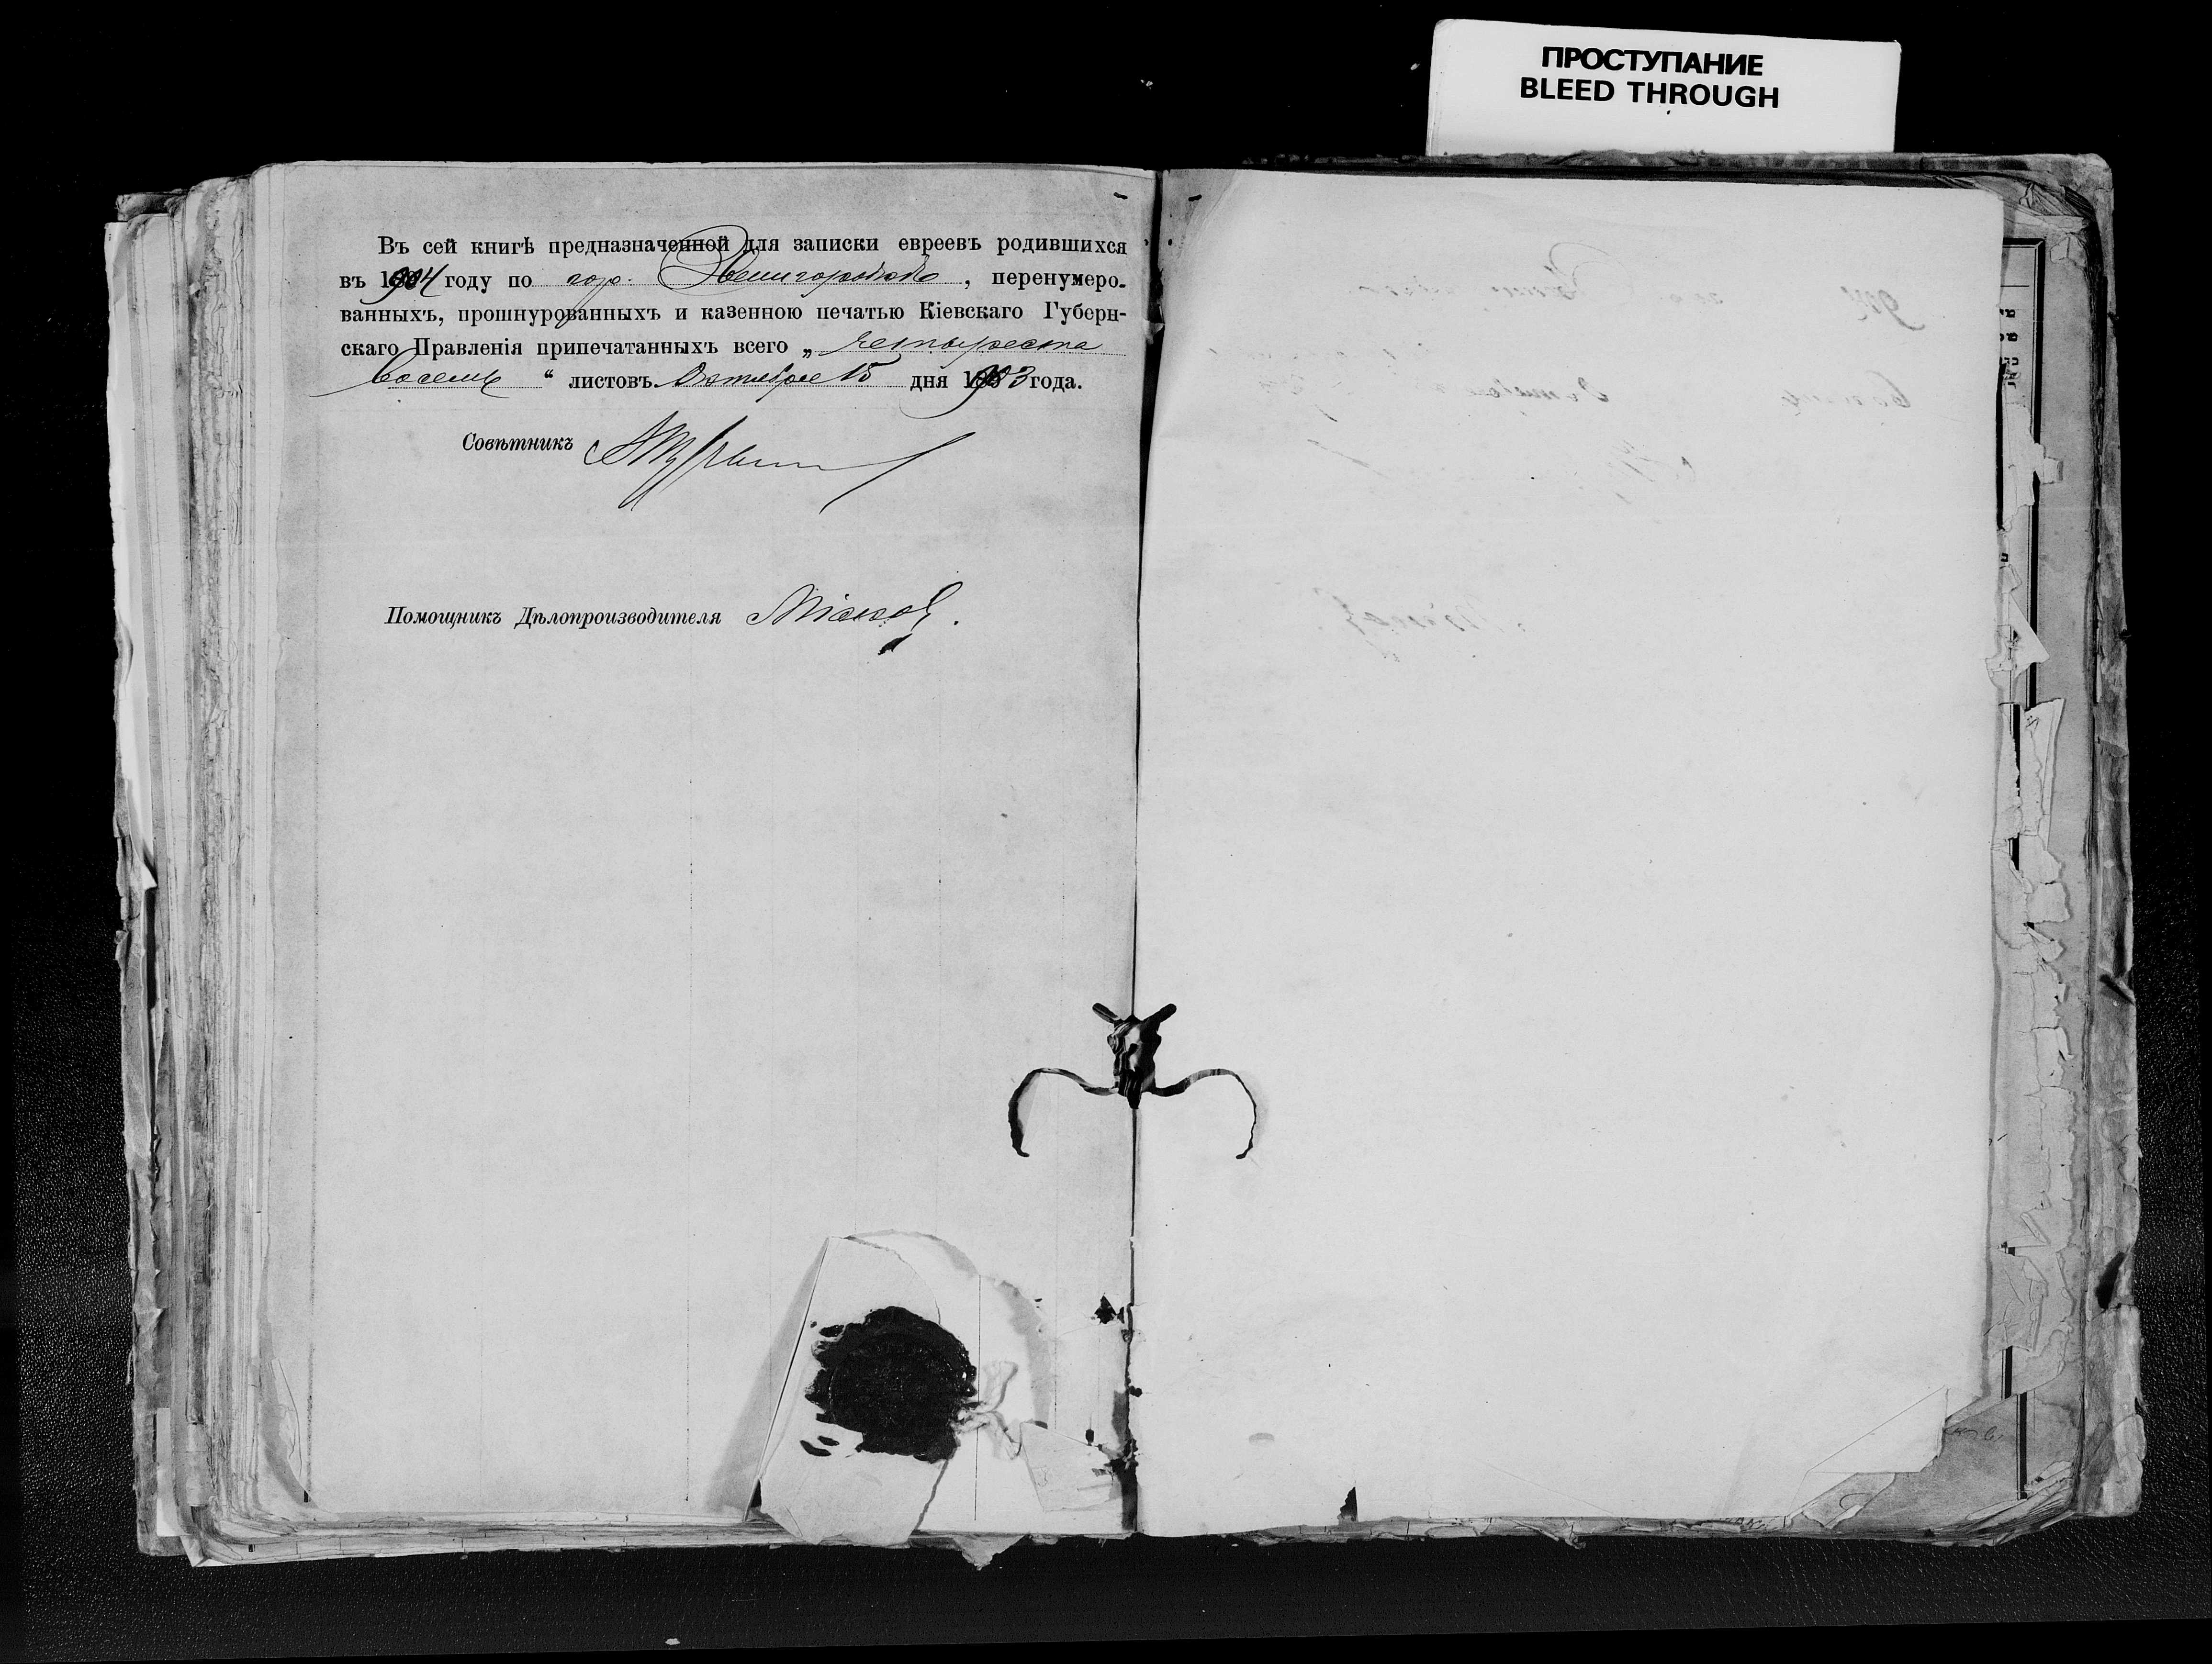 ПРОСТУПАНИЕ
BLEED THROUGH
Въ сей книгѣ предназначенной для записки евреевъ родившихся
въ 1904 году по гор. Звенигородкѣ, перенумеро-
ванныхъ, прошнурованныхъ и казенною печатью Кіевскаго Губерн-
скаго Правленія припечатанныхъ всего „ четыреста
восемь “ листовъ. Октября 15 дня 1903 года.
Совѣтникъ
Помощникъ Дѣлопроизводителя